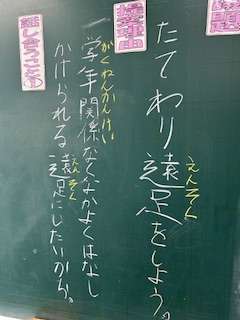 たてわり遠足をしよう。
えんそく
提案理由
学年関係なくなかよくはなし
がくねんかんけい
かけられる遠足にしたいから。
えんそく
話し合うこと①